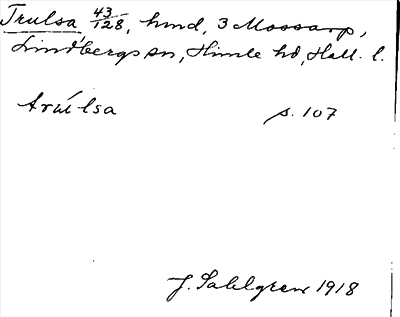 Trulsa 43/128, hmd, 3 Mossarp,
Lindbergs sn, Himle hd, Hall. l.
trúlsa s. 107
J. Sahlgren 1918